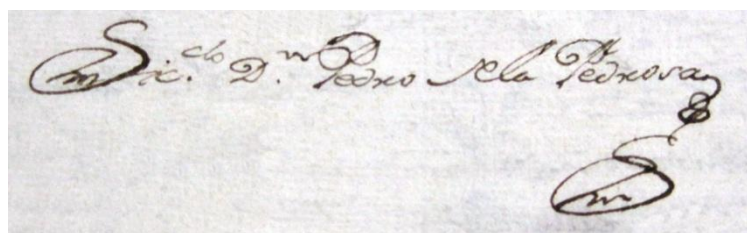 Lic.do D.n Pedro dela Pedrosa